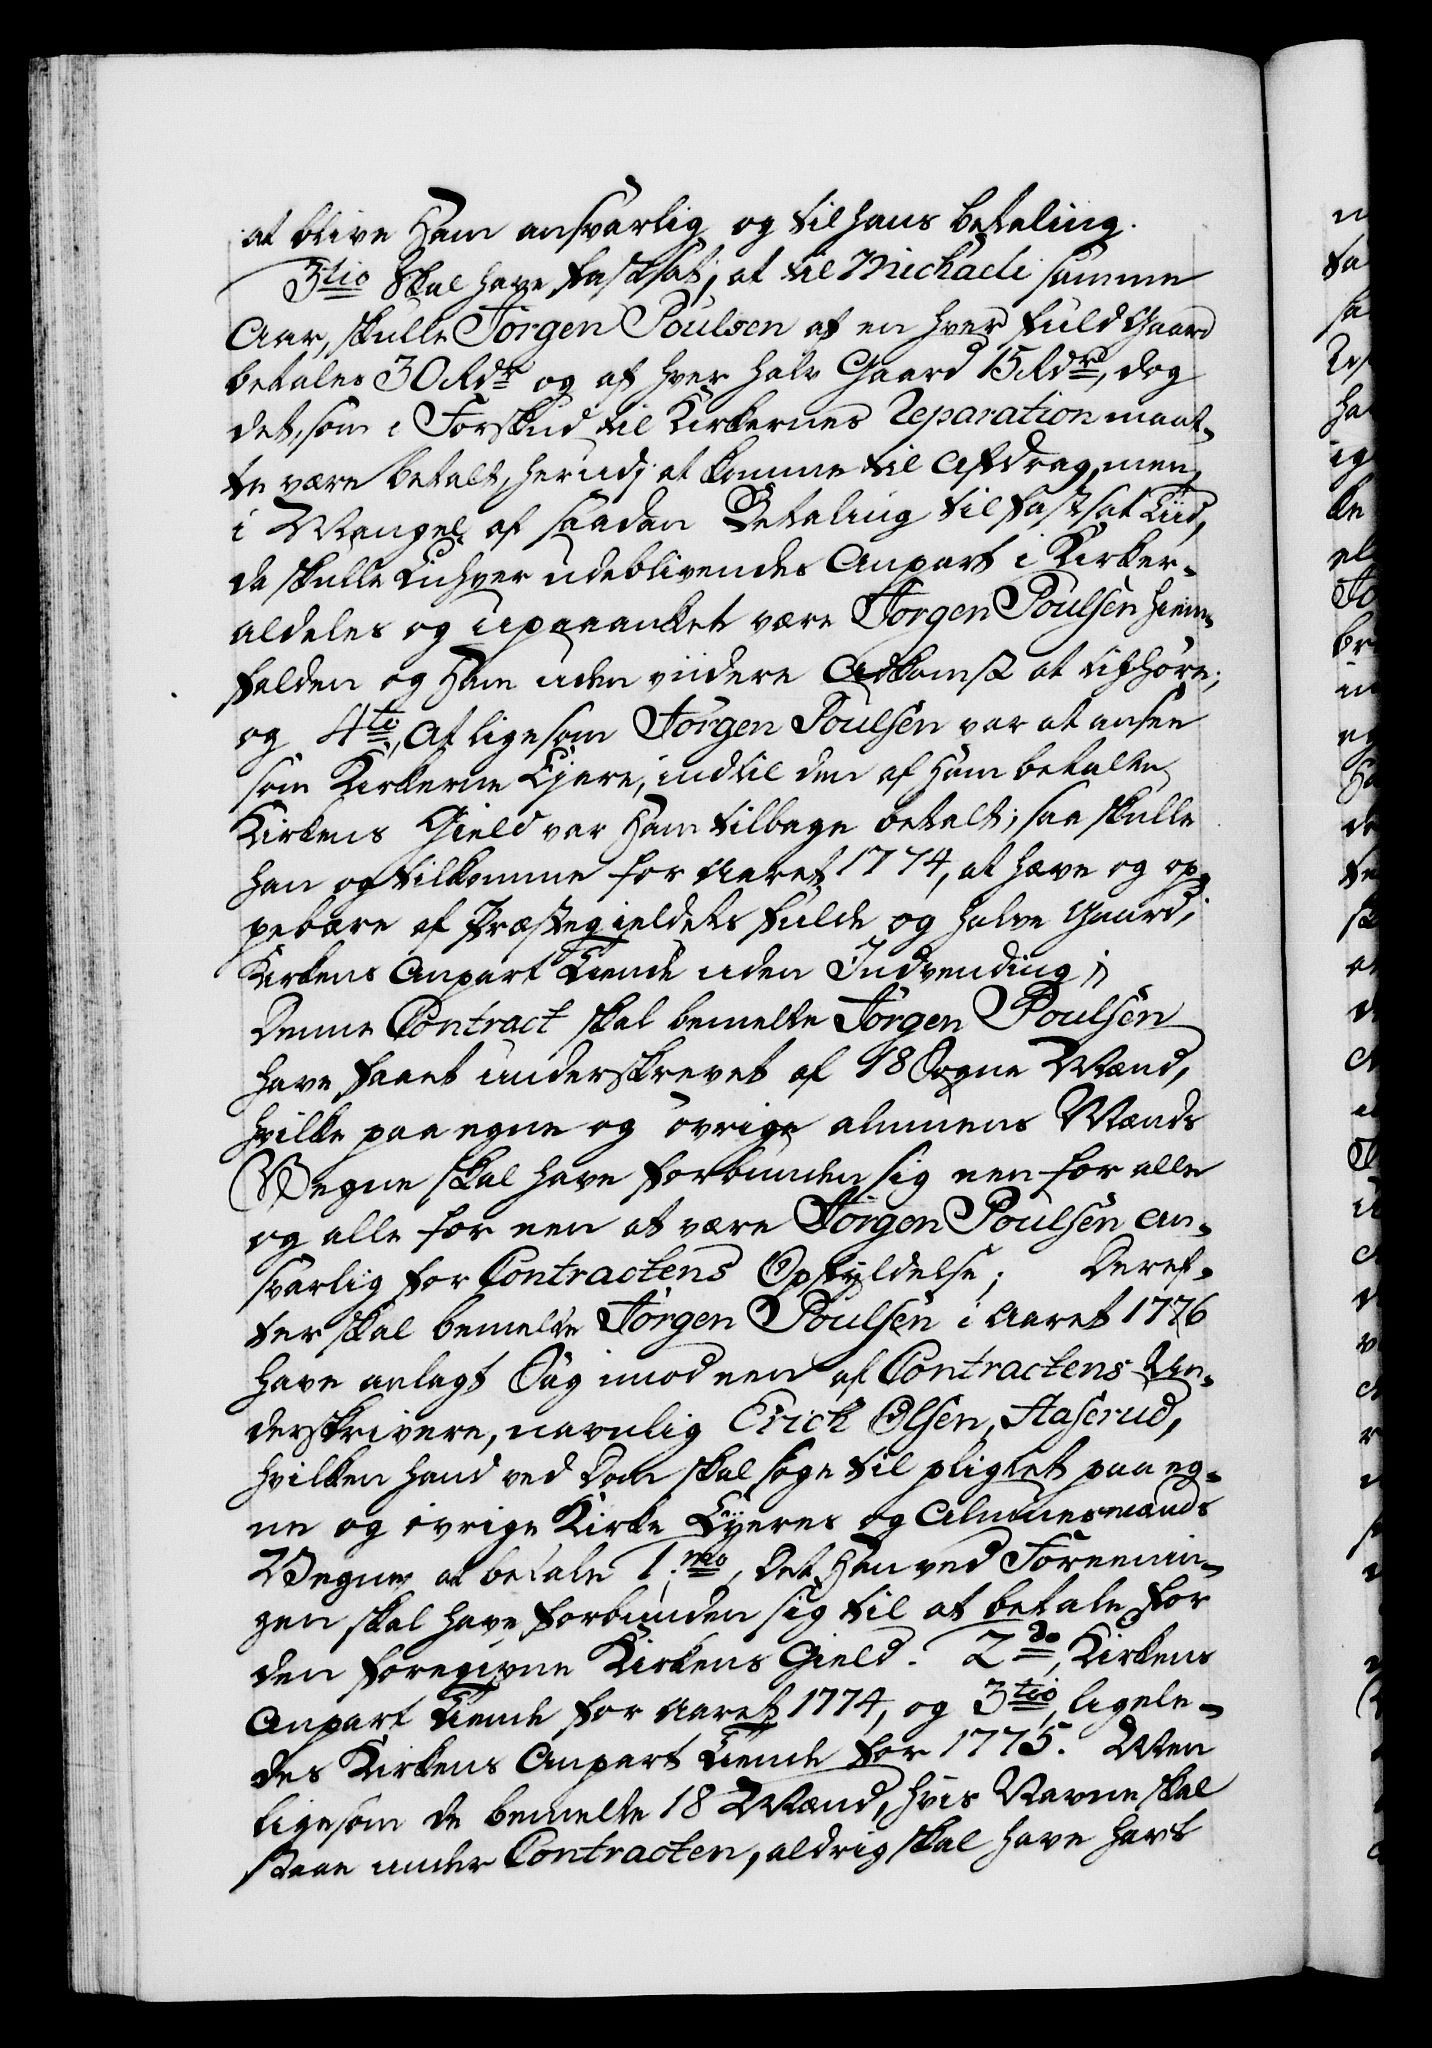 at blive Ham ansvarlig og til hans betaling.
3tio Skal have fastsat, at til Michaeli samme
Aar, skulle Jørgen Poulsen af en hver fuld Gaard
betales 30 Rdr og af hver halv Gaard 15 Rdr, dog
det, som i Forskud til Kirkernes Reparation maat-
te være betalt, herudj at komme til Afdrag, men
i Mangel af saadan Betaling til fastsat Tiid,
da skulle Enhver udeblivendes Anpart i Kirker-
aldeles og upaaanket være Jørgen Poulsen hiem-
falden og Ham uden viidere Adkomst at tilhøre;
og 4to, At ligesom Jørgen Poulsen var at ansee
som Kirkerne Ejere, indtil den af Ham betalte
Kirkens Gield var Ham tilbage betalt; saa skulle
han og tilkomme for Aaret 1774, at hæve og op-
pebære af Præstegieldets fulde og halve Gaard,
Kirkens Anpart Tiende uden Indvending;
Denne Contract skal bemelte Jørgen Poulsen
have faaet underskrevet af 18 Sogne Mænd,
hvilke paa egne og øvrige almuens Mænds
Vegne skal have forbunden sig een for alle
og alle for een at være Jørgen Poulsen an-
svarlig for Contractens Opfyldelse; Deref-
ter skal bemelte Jørgen Poulsen i Aaret 1776
have anlagt Sag imod een af Contractens Un-
derskrivere, navnlig Erick Olsen Aaserud,
hvilken hand ved Dom skal søge til pligtet paa eg-
ne og øvrige Kirke Eyeres og Almuesmænds
Vegne at betale 1mo, Det Han ved Foreenin-
gen skal have forbunden sig til at betale for
den foregivne Kirkens Gield. 2do, Kirkens
Anpart Tiende for Aaret 1774, og 3tio, ligele-
des Kirkens Anpart Tiende for 1775. Men
ligesom de bemelte 18 Mænd, hvis Navne skal
staae under Contracten, aldrig skal have havt